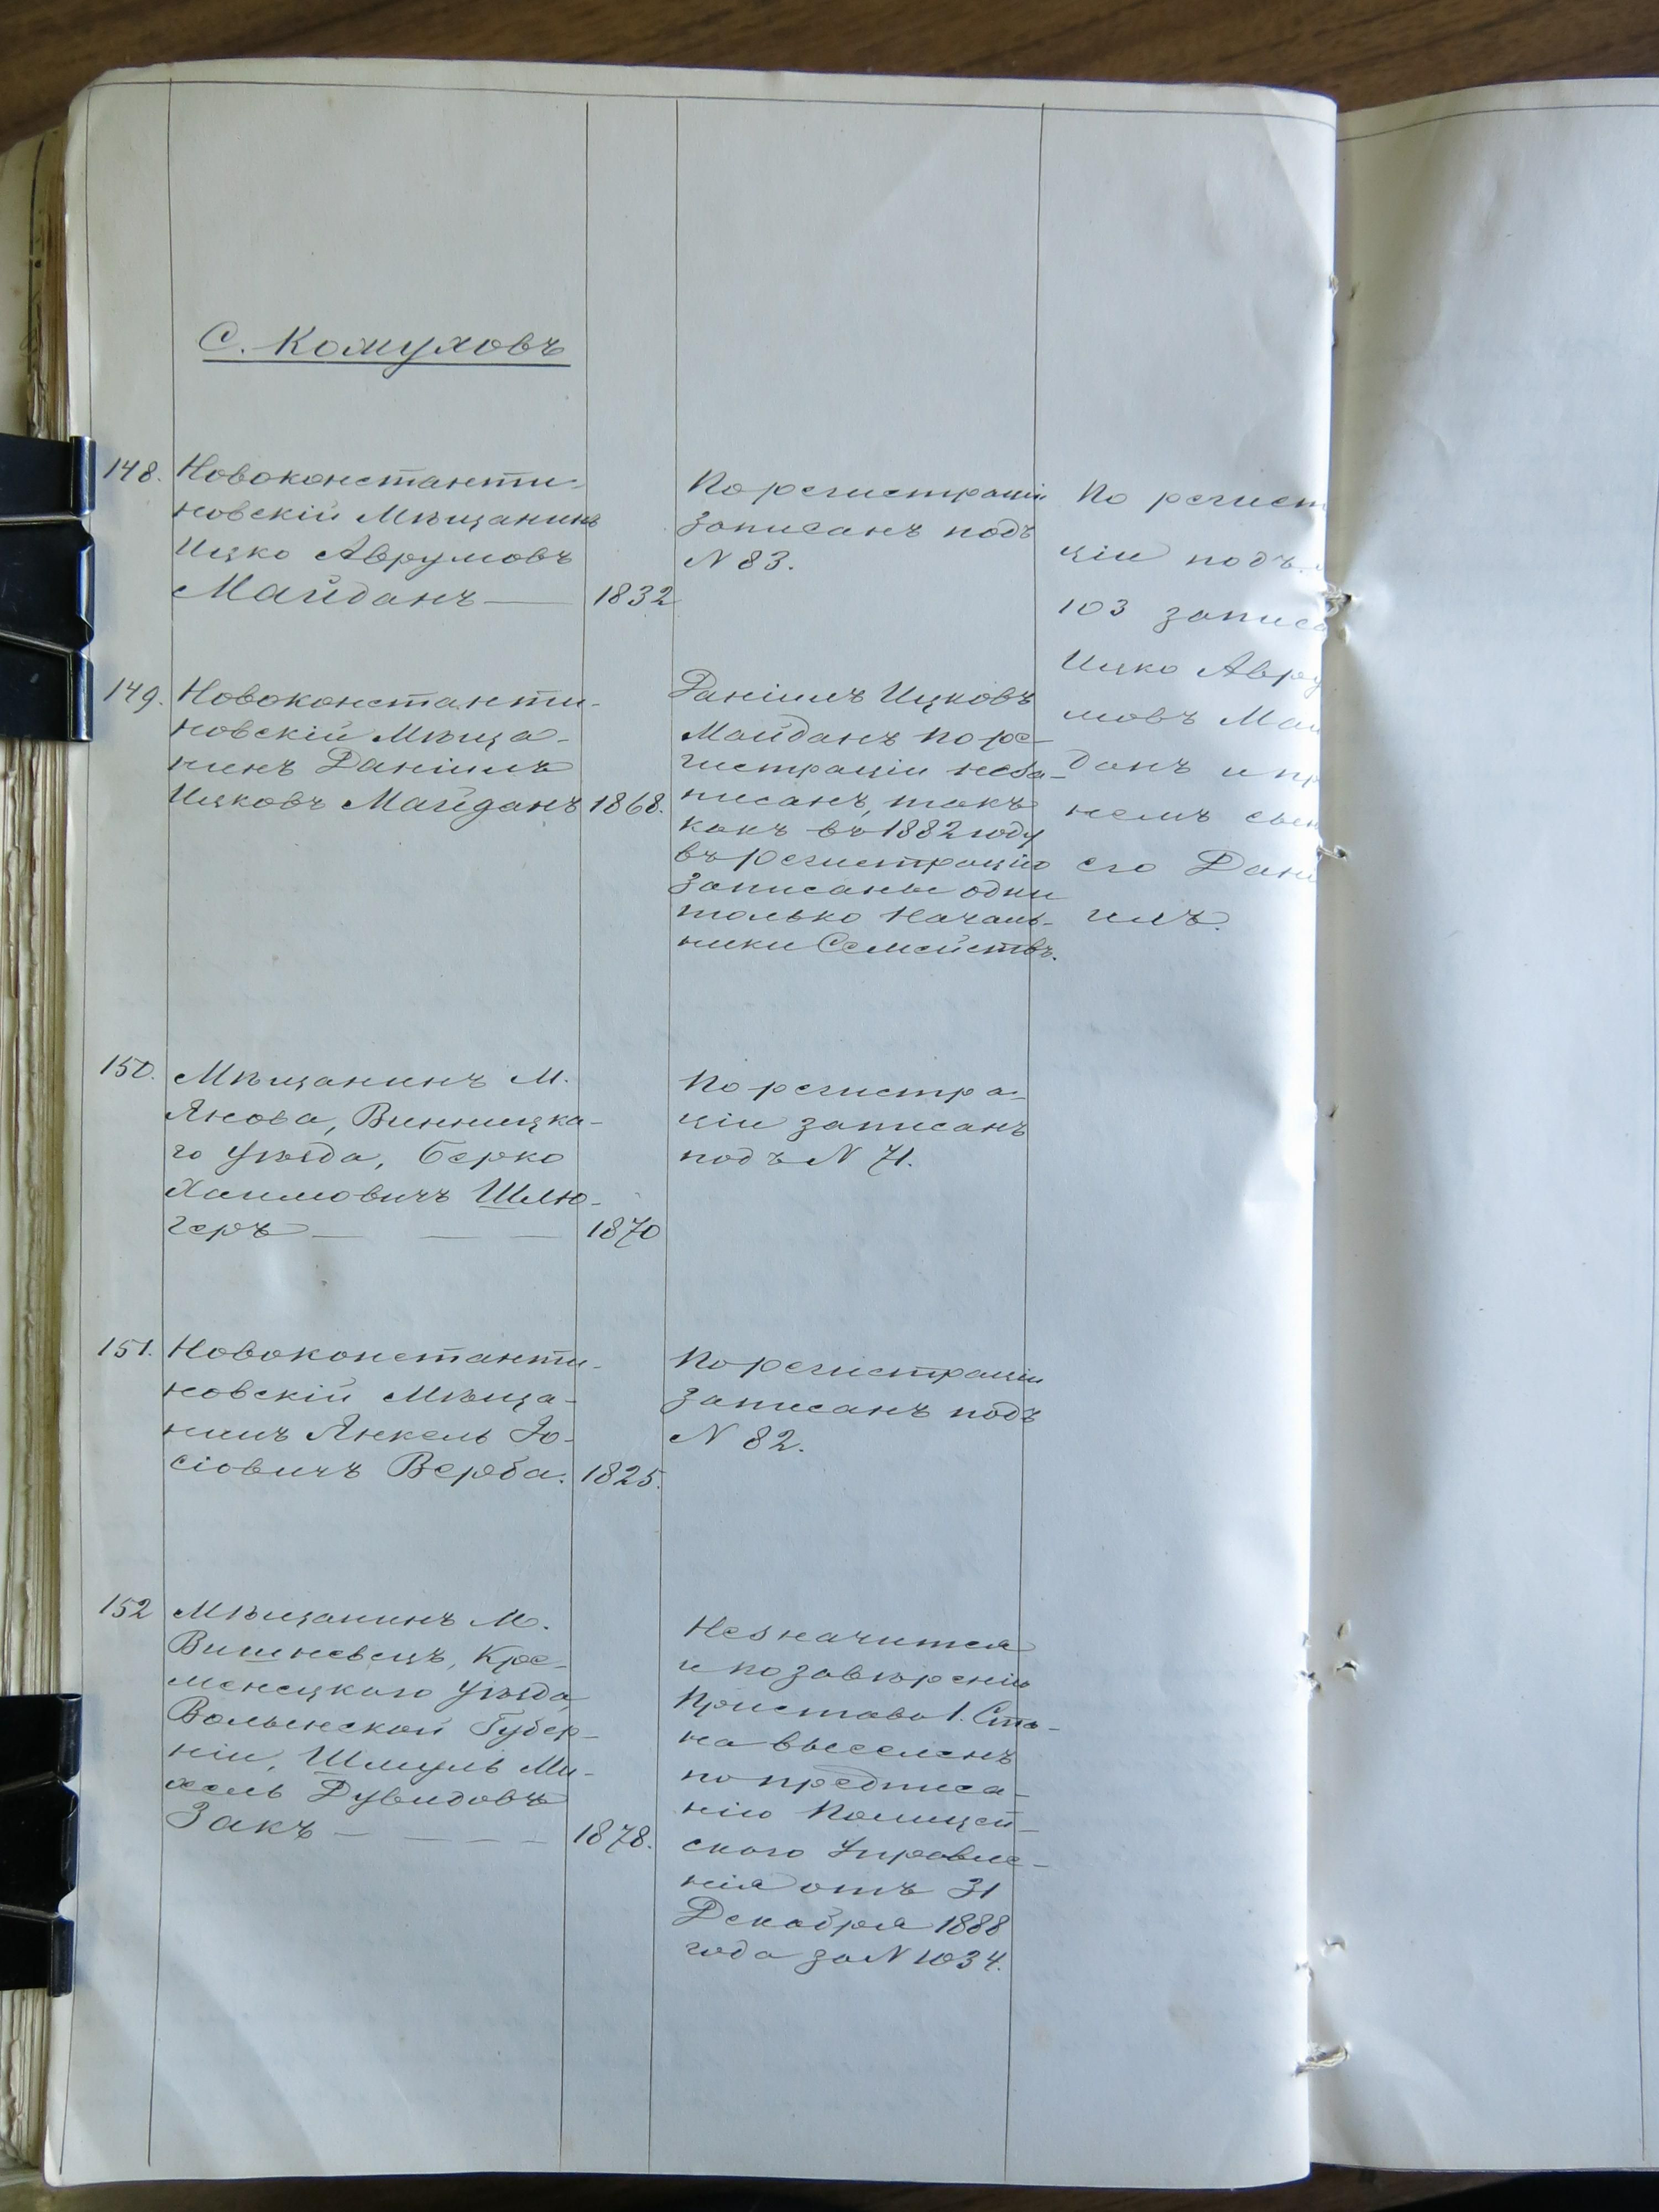 С. Комуховъ
148. Новоконстанти-
новскій Мѣщанинъ
Ицко Аврумовъ
Майданъ — 1832
По регистраціи
записанъ подъ
N 83.
По регист
ціи подъ
103 записа
Ицко Авру
мовъ Май
данъ и пр
немъ сын
его Дані
илъ.
149. Новоконстанти-
новскій Мѣща-
нинъ Даніилъ
Ицковъ Майданъ 1868.
Даніилъ Ицковъ
Майданъ по ре-
гистраціи неза-
писанъ, такъ
какъ въ 1882 году
въ регистрацію
записаны одни
только Началь-
ники Семействъ.
150. Мѣщанинъ М.
Янова, Винницка-
го уѣзда, Берко
Хаимовичъ Шлю-
геръ — — — 1870
По регистра-
ціи записанъ
подъ N 71.
151. Новоконстанти-
новскій Мѣща-
нинъ Янкель Іо-
сіовичъ Верба. 1825.
По регистраціи
записанъ подъ
N 82.
152 Мѣщанинъ М.
Вишневецъ, Кре-
менецкаго уѣзда,
Волынской Губер-
ніи, Шмуль Ми-
хель Дувидовъ
Закъ — — — — 1878.
Незначится
и по завѣренію
Пристава 1. Ста-
на выселенъ
по предписа-
нію Полицей-
скаго Управле-
нія отъ 31
Декабря 1888
года за N 1034.